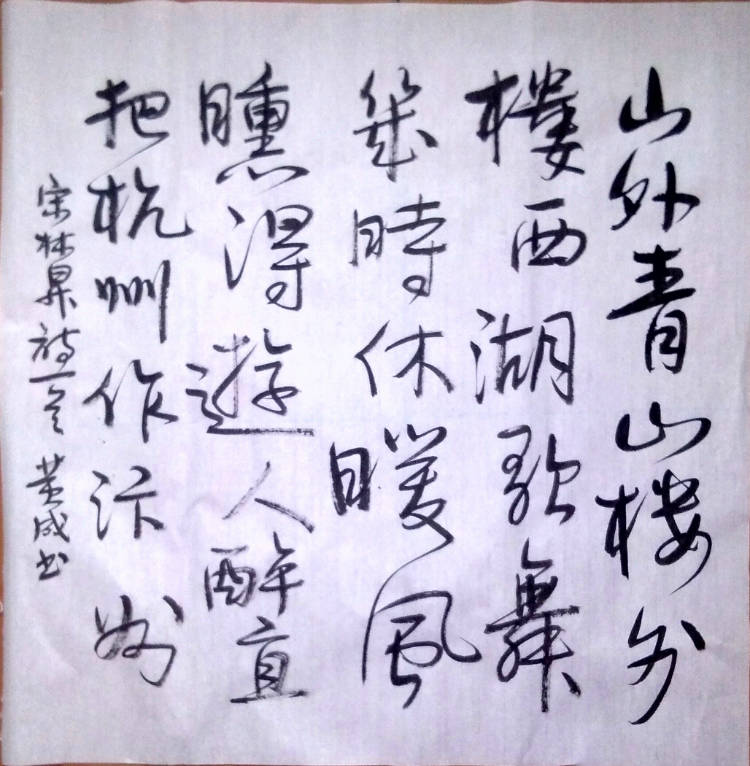 山外青山楼外
樓西湖歌舞
幾時休暖風
曛得遊人醉直
把杭州作汴州
宋林昇詩一首 黄成书